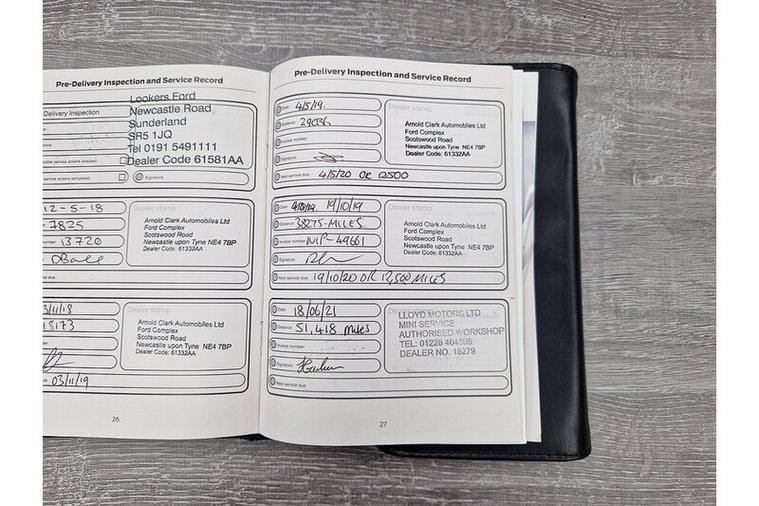 Pre-Delivery Inspection and Service Record
Delivery Inspection
Lookers Ford
Newcastle Road
Sunderland
SR5 1JQ
Tel 0191 5491111
Dealer Code 61581AA
service actions checked
service actions completed
Signature
12-5-18
7825
13720
service due:
Dealer stamp
Arnold Clark Automobiles Ltd
Ford Complex
Scotswood Road
Newcastle upon Tyne NE4 7BP
Dealer Code: 61332AA
3/11/18
15173
- 03/11/19
Dealer stamp
Arnold Clark Automobiles Ltd
Ford Complex
Scotswood Road
Newcastle upon Tyne NE4 7BP
Dealer Code: 61332AA
26
Pre-Delivery Inspection and Service Record
Date: 4/5/19.
Distance: 29036
Invoice number:
Signature:
Next service due: 4/5/20 OR 12500
Dealer stamp
Arnold Clark Automobiles Ltd
Ford Complex
Scotswood Road
Newcastle upon Tyne NE4 7BP
Dealer Code: 61332AA
Date: 19/10/19
Distance: 38275-MILES.
Invoice number: WIP-49661
Signature:
Next service due: 19/10/20 OR 12,500 MILES
Arnold Clark Automobiles Ltd
Ford Complex
Scotswood Road
Newcastle upon Tyne NE4 7BP
Dealer Code: 61332AA
Date: 18/06/21
Distance: 51,418 miles
Invoice number:
Signature:
Next service due:
Dealer stamp
LLOYD MOTORS LTD
MINI SERVICE
AUTHORISED WORKSHOP
TEL: 01228 464505
DEALER NO. 16279
27